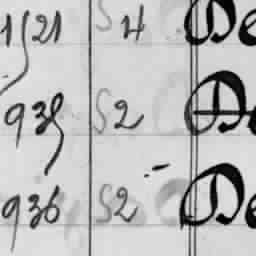 1921 S 4 De
938 S2 De
936 S2 De